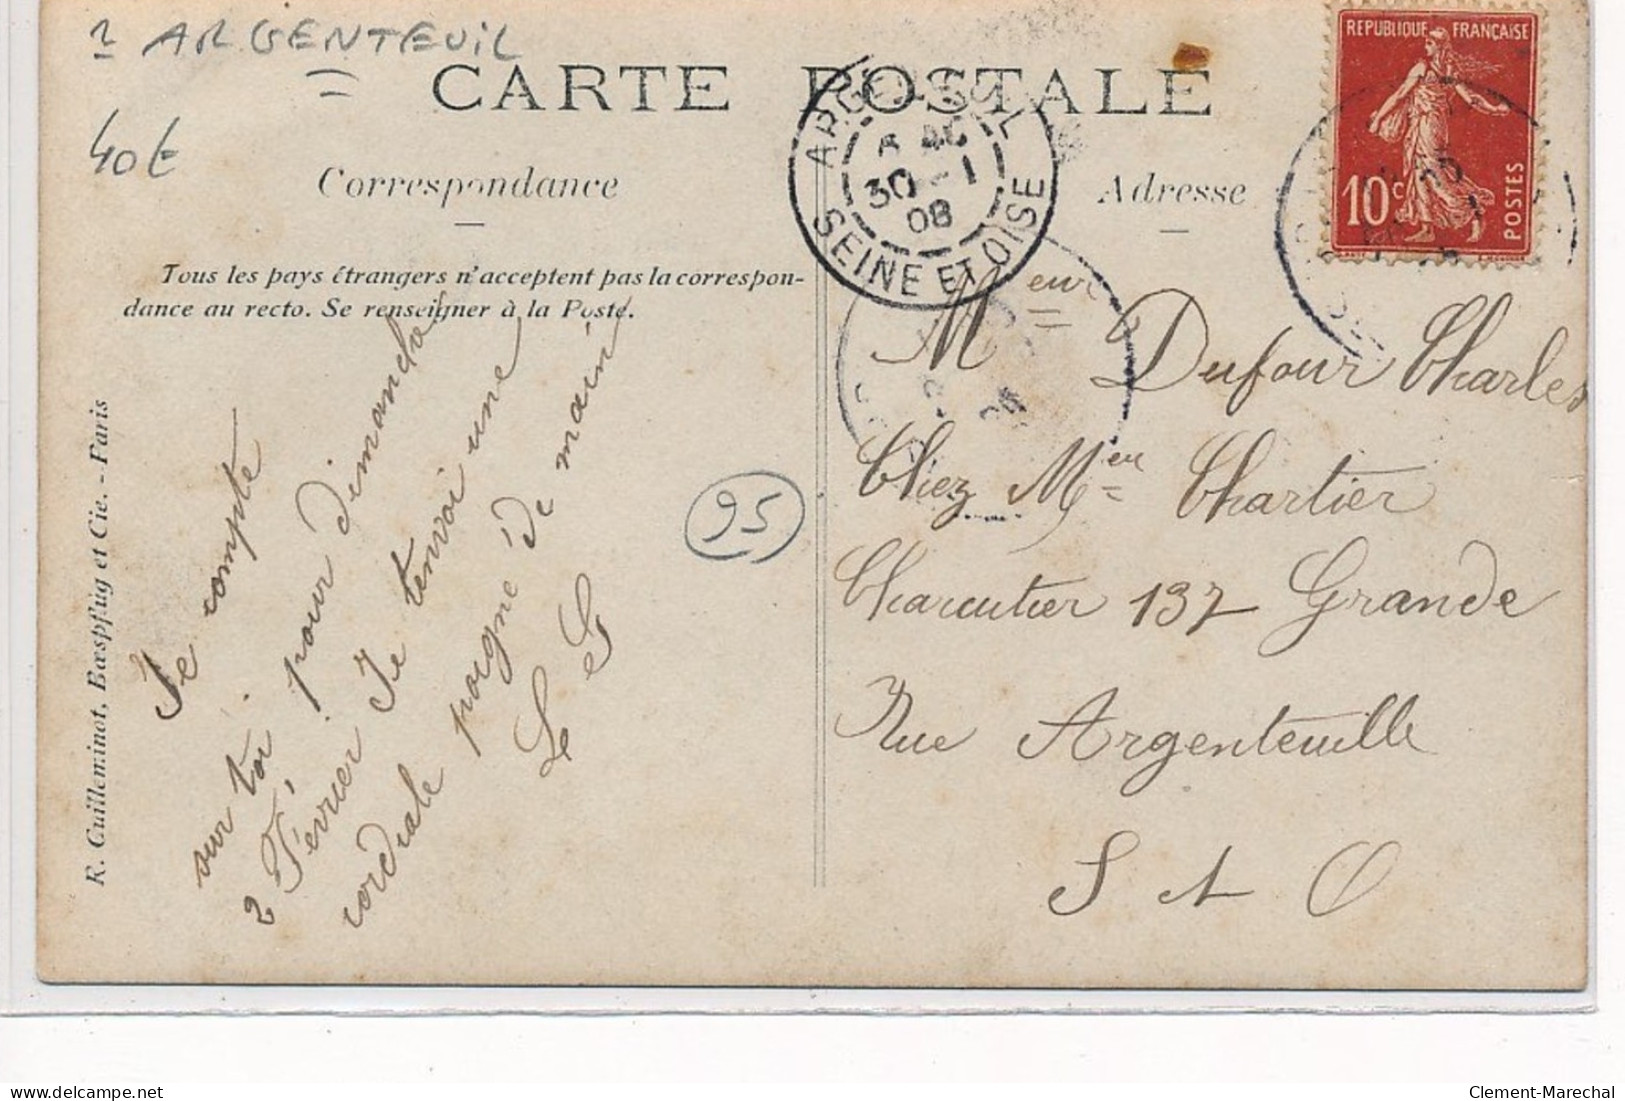 ARGENTEUIL
40€
CARTE POSTALE
REPUBLIQUE FRANÇAISE
10c
POSTES
Correspondance
Adresse
ARGENTEUIL
30 - 1
08
SEINE ET OISE
Tous les pays étrangers n'acceptent pas la correspon-
dance au recto. Se renseigner à la Poste.
R. Guilleminot, Bœspflug et Cie. - Paris
Je compte
sur toi pour dimanche
2 Février Je tenvoi une
cordiale poigné de main
Le
95
Meur Dufour Charles
Chez Meur Chartier
Charcutier 137 Grande
Rue Argenteuille
S et O
delcampe.net
Clement-Marechal